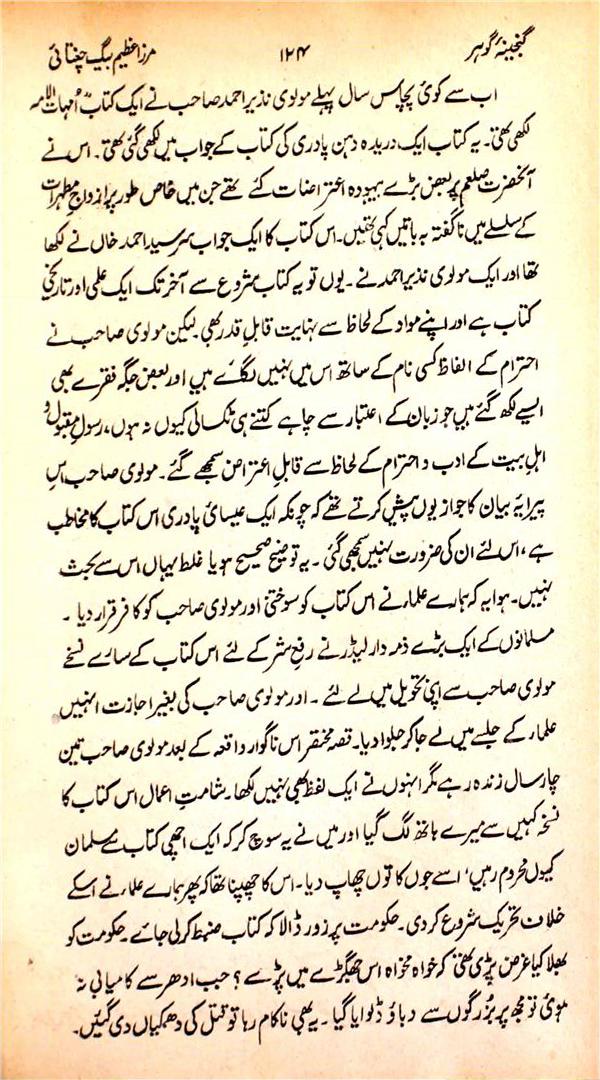 گنجینۂ گوہر ۱۲۴ مرزا عظیم بیگ چغتائی
اب سے کوئی پچاس سال پہلے مولوی نذیر احمد صاحب نے ایک کتاب "امہات الامہ
لکھی تھی۔ یہ کتاب ایک دریدہ دہن پادری کی کتاب کے جواب میں لکھی گئی تھی۔ اس نے
آنحضرت صلعم پر بعض بڑے بیہودہ اعتراضات کئے تھے جن میں خاص طور پر ازدواج مطہرات
کے سلسلے میں ناگفتہ بہ باتیں کہی تھیں۔ اس کتاب کا ایک جواب سر سید احمد خاں نے لکھا
تھا اور ایک مولوی نذیر احمد نے۔ یوں تو یہ کتاب شروع سے آخر تک ایک علمی اور تاریخی
کتاب ہے اور اپنے مواد کے لحاظ سے نہایت قابل قدر بھی لیکن مولوی صاحب نے
احترام کے الفاظ کسی نام کے ساتھ اس میں نہیں لگائے ہیں اور بعض جگہ فقرے بھی
ایسے لکھ گئے ہیں جو زبان کے اعتبار سے چاہے کتنے ہی ٹکسالی کیوں نہ ہوں، رسول مقبول و
اہل بیت کے ادب و احترام کے لحاظ سے قابلِ اعتراض سمجھے گئے۔ مولوی صاحب اس
پیرایۂ بیان کا جواز یوں پیش کرتے تھے کہ چونکہ ایک عیسائی پادری اس کتاب کا مخاطب
ہے، اس لئے ان کی ضرورت نہیں سمجھی گئی۔ یہ توضیح صحیح ہو یا غلط یہاں اس سے بحث
نہیں۔ ہوا یہ کہ ہمارے علماء نے اس کتاب کو سوختنی اور مولوی صاحب کو کافر قرار دیا۔
مسلمانوں کے ایک بڑے ذمہ دار لیڈر نے رفع شر کے لئے اس کتاب کے سارے نسخے
مولوی صاحب سے اپنی تحویل میں لے لئے۔ اور مولوی صاحب کی بغیر اجازت انہیں
علماء کے جلسے میں لے جا کر جلوا دیا۔ قصہ مختصر اس ناگوار واقعہ کے بعد مولوی صاحب تین
چار سال زندہ رہے مگر انہوں نے ایک لفظ بھی نہیں لکھا۔ شامتِ اعمال اس کتاب کا
نسخہ کہیں سے میرے ہاتھ لگ گیا اور میں نے یہ سوچ کر کہ ایک اچھی کتاب سے مسلمان
کیوں محروم رہیں، اسے جوں کا توں چھاپ دیا۔ اس کا چھپنا تھا کہ پھر ہمارے علماء نے اسکے
خلاف تحریک شروع کر دی۔ حکومت پر زور ڈالا کہ کتاب ضبط کر لی جائے۔ حکومت کو
بھلا کیا غرض پڑی تھی کہ خواہ مخواہ اس جھگڑے میں پڑے؟ جب ادھر سے کامیابی نہ
ہوئی تو مجھ پر بزرگوں سے دباؤ ڈلوایا گیا۔ یہ بھی ناکام رہا تو قتل کی دھمکیاں دی گئیں۔